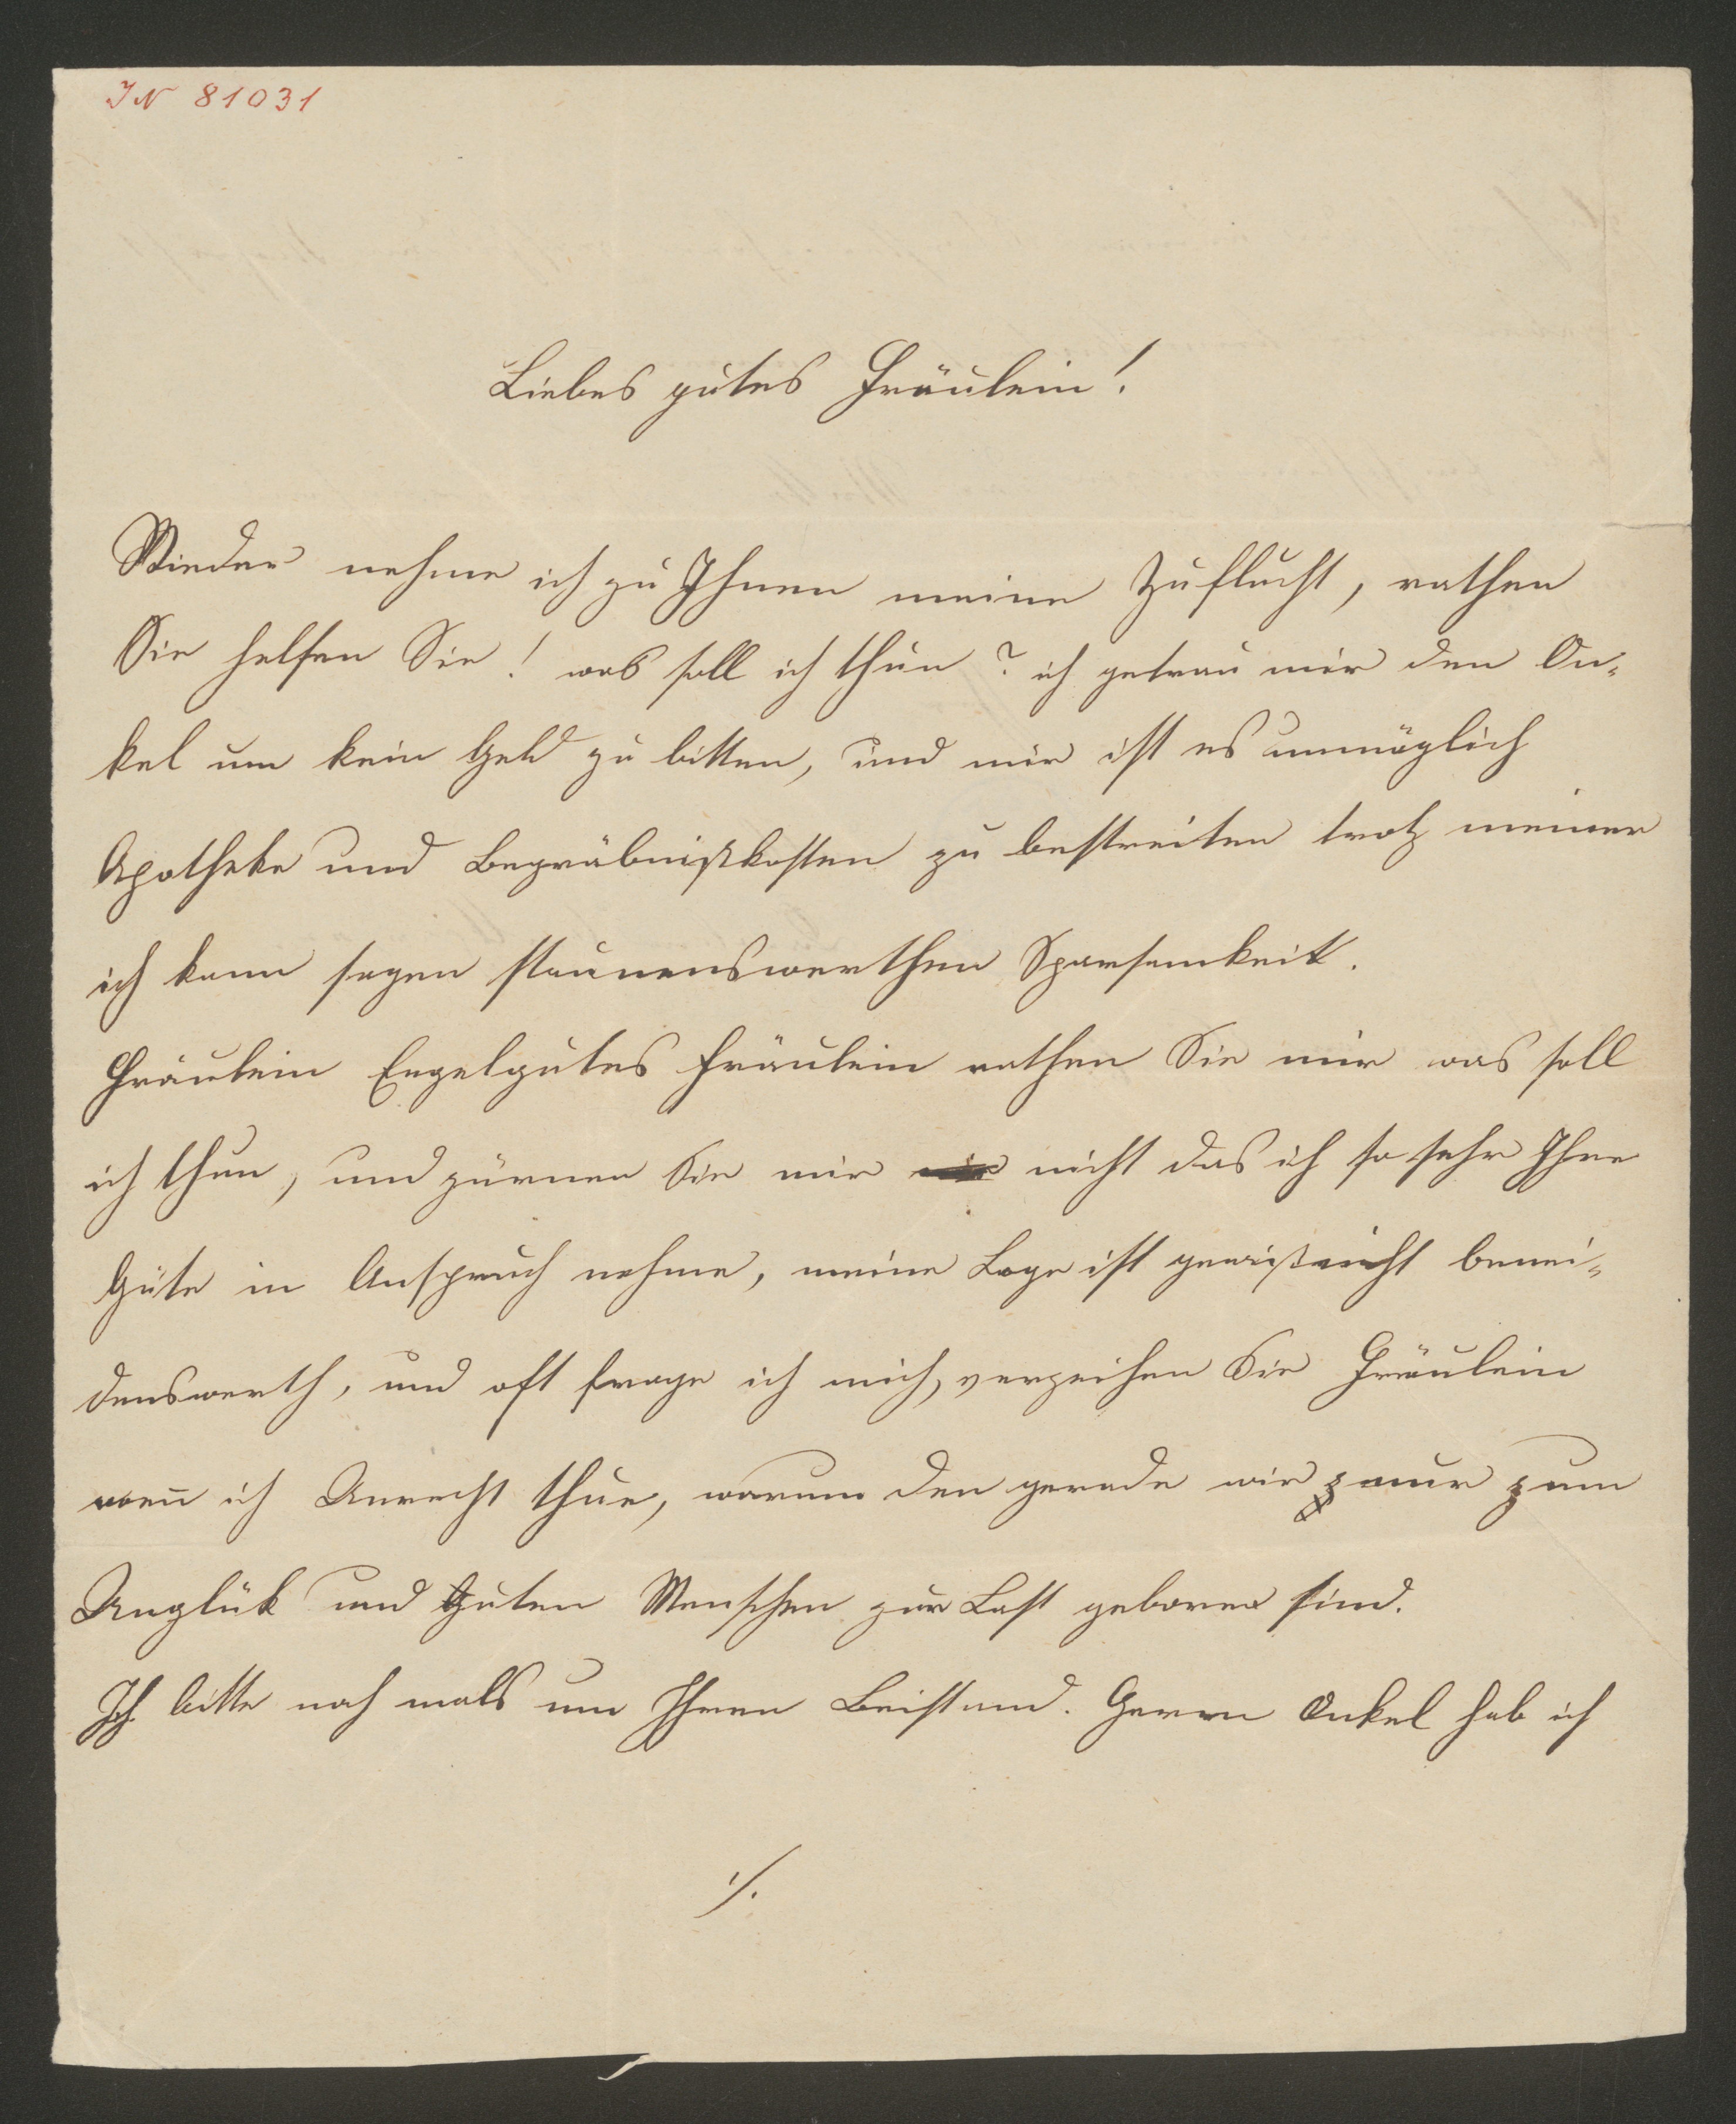 IN 81031
Liebes gutes Fräulein!
Wieder nehme ich zu Ihnen meine Zuflucht, rathen
Sie helfen Sie! was soll ich thun? ich getrau mir den On-
kel um kein Geld zu bitten, und mir ist es unmöglich
Apotheke und Begräbnißkosten zu bestreiten trotz meiner
ich kann sagen staunenswerthen Sparsamkeit.
Fräulein Engelgutes Fräulein rathen Sie mir was soll
ich thun, und zürnen Sie mir nicht das ich so sehr Ihre
Güte in Anspruch nehme, meine Lage ist gewiß nicht benei-
denswerth, und oft frage ich mich, verzeihen Sie Fräulein
wen̄ ich Unrecht thue, warum den gerade wir nur zum
Unglük und Guten Menschen zur Last geboren sind.
Ich bitte noch mals um Ihren Beistand. Herrn Onkel hab ich
./.